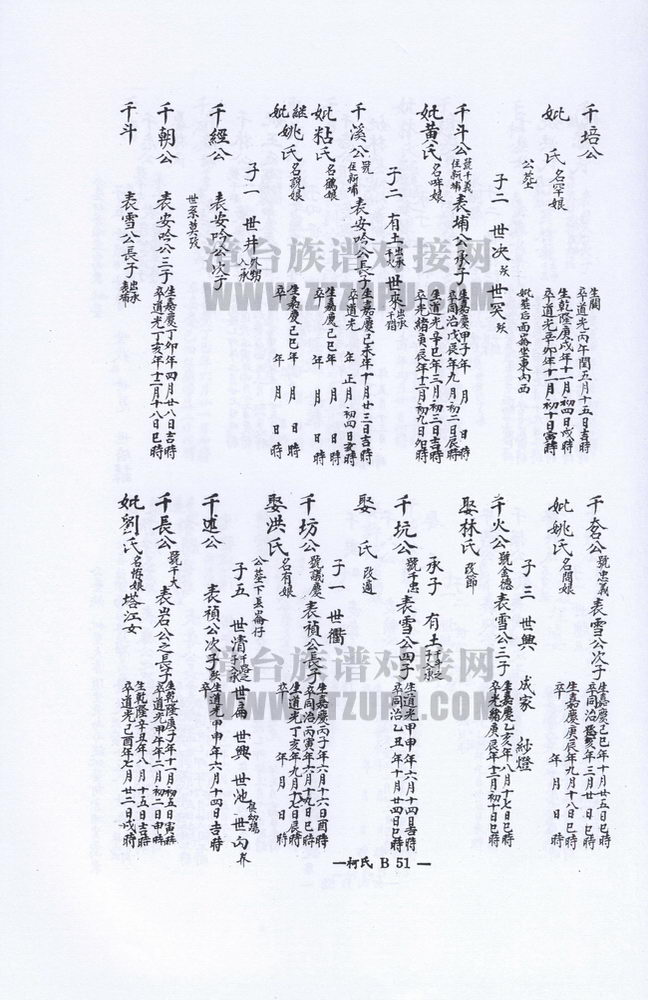 千培公 生 閩 卒道光丙午閏五月十五日吉時
妣 氏 名罕娘 生乾隆庚戌年十一月初四日戌時 卒道光辛卯年十一月初十日寅時
公葬 妣葬后面崙坐東向西
子二 世决 殀 世突 殀
千斗公 號千義 住新埔 袁埔公承子 生嘉慶甲子年 月 日 時 卒同治戊辰年九月初二日辰時
妣黄氏 名哖娘 生嘉慶辛巳年三月初三日吉時 卒光緒庚辰年十二月初九日卯時
子二 有土 出承 世來 出承千錯
千溪公 號 住新埔 袁安哈公長子 生嘉慶己未年十月廿三日吉時 卒道光 年正月初四日亥時
妣粘氏 名鵝娘 生嘉慶己巳年 月 日 時 卒 年 月 日 時
継妣姚氏 名説娘 生嘉慶己巳年 月 日 時 卒 年 月 日 時
子一 世井 外甥入承
千經公 袁安哈公次子
世系莫攷
千朝公 袁安哈公三子 生嘉慶丁卯年四月廿八日吉時 卒道光丁亥年十二月十八日巳時
千斗 袁雪公長子 出承袁埔
千枩公 號忠義 袁雪公次子 生嘉慶己巳年十月廿五日巳時 卒同治癸亥年三月廿 日巳時
妣姚氏 名閙娘 生嘉慶庚辰年九月十八日巳時 卒 年 月 日 時
子三 世興 成家 紗燈
千火公 號含德 袁雪公三子 生嘉慶乙亥年八月十七日巳時 卒光緒庚辰年十二月初十日巳時
娶林氏 改節
承子 有土 千斗之子承
千坑公 號千忠 袁雪公四子 生道光甲申年六月十四日吉時 卒同治乙丑年十月廿四日巳時
娶 氏 改適
子一 世衢
千坊公 號議慶 袁禎公長子 生嘉慶丙子年六月十六日酉時 卒同治丙寅年六月十九日巳時
娶洪氏 名有娘 生道光丁亥年九月十七日辰時 卒 年 月 日 時
公葬下長崙仔
子五 世清 千路之子入承 世扁 世興 世池 世向 養
千述公 袁禎公次子 殀 生道光甲申年六月十四日吉時 卒
千長公 號千大 袁岩公之長子 生乾隆庚子年十一月初五日寅時 卒道光甲午年二月初二日申時
妣劉氏 名悟娘 塔江女 生乾隆辛丑年八月十五日吉時 卒道光己酉年七月廿二日戌時
—柯氏 B 51—
漳台族谱对接网
WWW.ZTZUPU.COM
漳台族谱对接网
WWW.ZTZUPU.COM